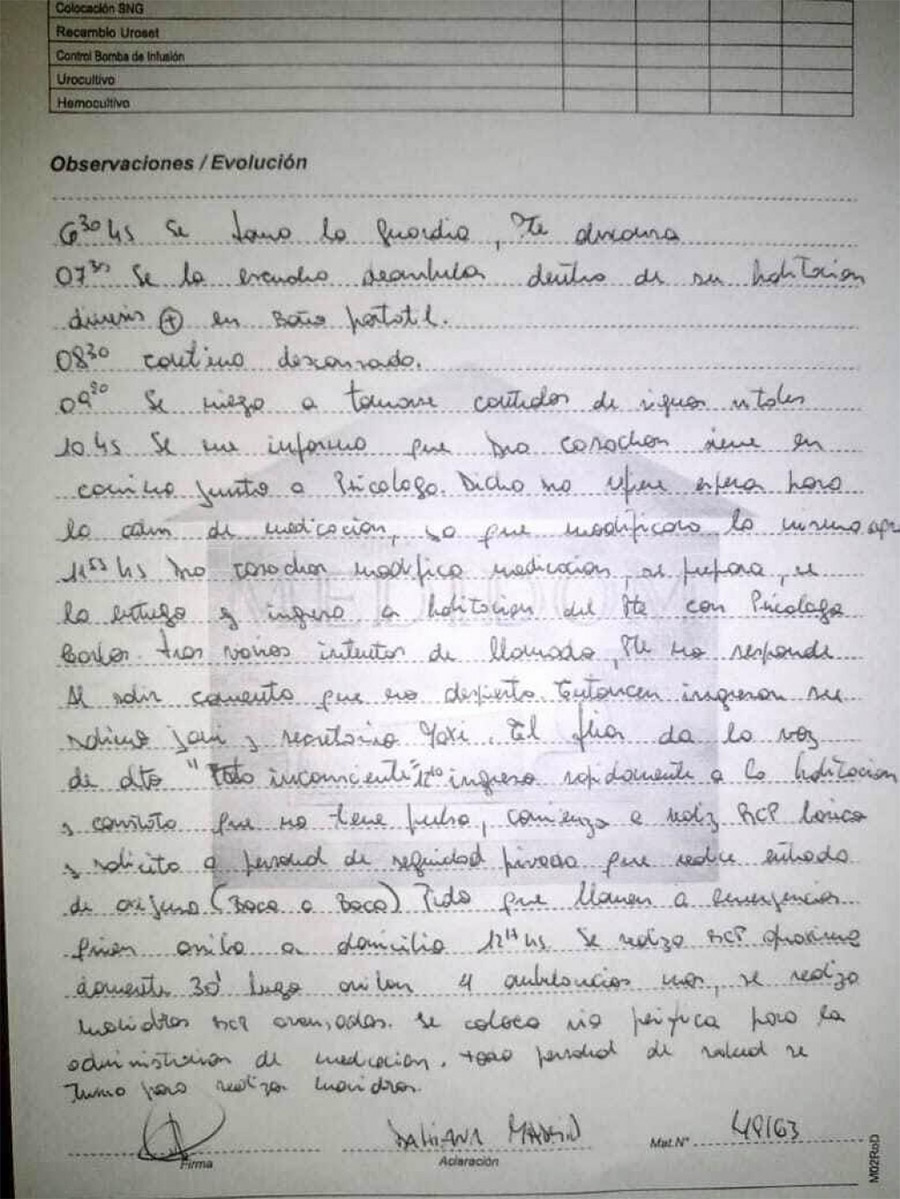 Colocación SNG
Recambio Uroset
Control Bomba de Infusión
Urocultivo
Hemocultivo
Observaciones / Evolución
6³⁰ hs Se tomo la guardia, Pte descansa
07³⁰ Se lo escucho deambular dentro de su habitacion
diuresis (+) en Baño portatil.
08³⁰ continuo descansado.
09²⁰ Se niega a tomarse controles de signos vitales
10 hs Se me informo que Dra cosachov viene en
camino junto a Psicologo. Dicho Dra refiere espera para
la adm de medicacion, ya que modificara la misma
11⁵⁵ hs Dra cosachov modifico medicacion, se prepara, se
la entrego y ingreso a habitacion del Pte con Psicologo
Carlos. tras varios intentos de llamado, Pte no responde
Al salir comento que no desperto. Entonces ingresan su
sobrino Joni y secretario Maxi. El flia da la voz
de alto "Pte inconsciente" ingreso rapidamente a la habitacion
y constato que no tiene pulso, comienza a realiz RCP basica
y solicito a personal de seguridad privada que realice entrada
de oxigeno (Boca a Boca) Pido que llamen a emergencias
quien arribo a domicilio 12¹¹ hs. Se realizo RCP aproxima
damente 30' luego arriban 4 ambulancias mas, se realizo
maniobras RCP avanzadas. se coloca via periferica para la
administracion de medicacion. todo personal de salud se
turno para realizar maniobras.
Firma
DAHIANA MADRID
Aclaración
Mat.N° 49163
M02RoD
MEDIDOM